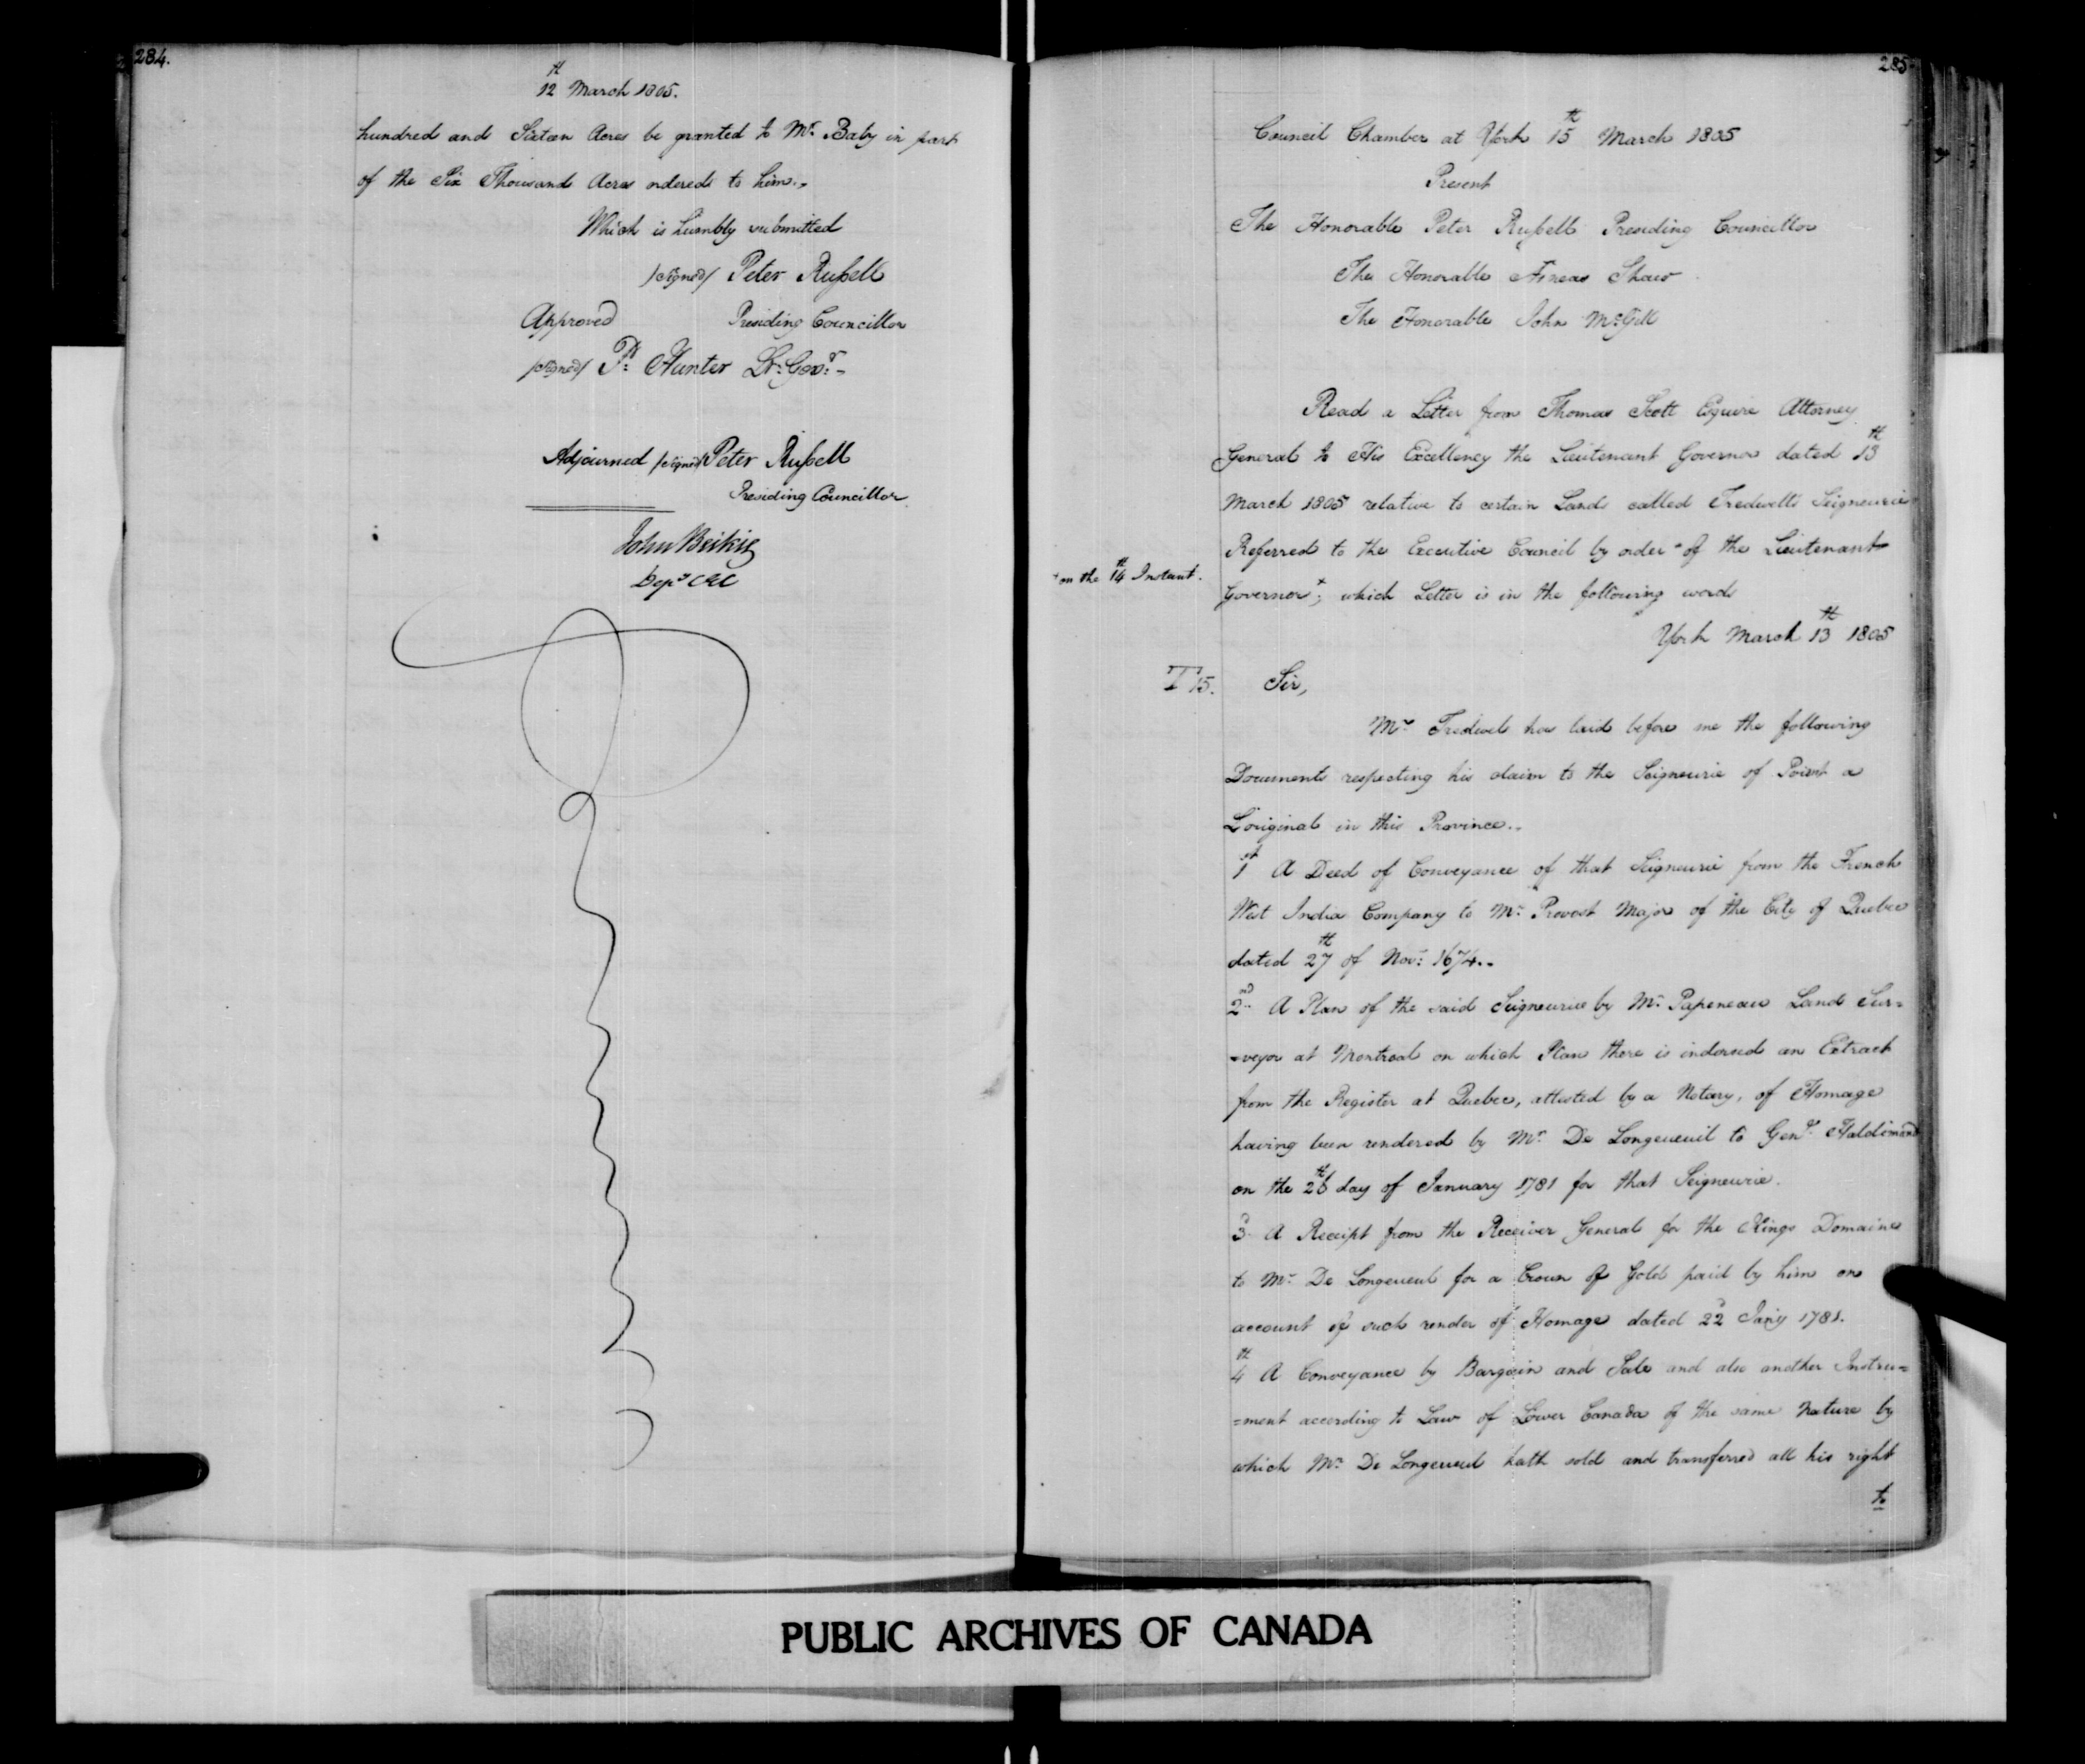 284.
12th March 1805.
hundred and Sixteen Acres be granted to Mr. Baby in part
of the Six Thousand Acres ordered to him.
Which is humbly submitted
/signed/ Peter Russell
Approved Presiding Councillor
/signed/ P. Hunter Lt. Govr.
Adjourned /signed/ Peter Russell
Presiding Councillor
John Beikie
Depy CEC
285
Council Chamber at York 15th March 1805
Present
The Honorable Peter Russell Presiding Councillor
The Honorable Æneas Shaw
The Honorable John McGill
Read a Letter from Thomas Scott Esquire Attorney
General to His Excellency the Lieutenant Governor dated 13th
March 1805 relative to certain Lands called Tredwells Seigneurie
Referred to the Executive Council by order of the Lieutenant
+ on the 14th Instant.
Governor +; which Letter is in the following words
York March 13th 1805
T 15. Sir,
Mr. Tredwel has laid before me the following
Documents respecting his claim to the Seigneurie of Point a
L'original in this Province..
1st A Deed of Conveyance of that Seigneurie from the French
West India Company to Mr. Provost Major of the City of Quebec
dated 27th of Novr: 1674..
2nd A Plan of the said Seigneurie by Mr. Papeneau Land Sur=
=veyor at Montreal on which Plan there is indorsed an Extract
from the Register at Quebec, attested by a Notary, of Homage
having been rendered by Mr. De Longeueuil to Genl. Haldimand
on the 26th day of January 1781 for that Seigneurie.
3d A Receipt from the Receiver General for the Kings Domaine
to Mr. De Longeueul for a Crown of Gold paid by him on
account of such render of Homage dated 22d Jany 1781.
4th A Conveyance by Bargain and Sale and also another Instru=
=ment according to Law of Lower Canada of the same Nature by
which Mr. De Longeueul hath sold and transferred all his right
to
PUBLIC ARCHIVES OF CANADA